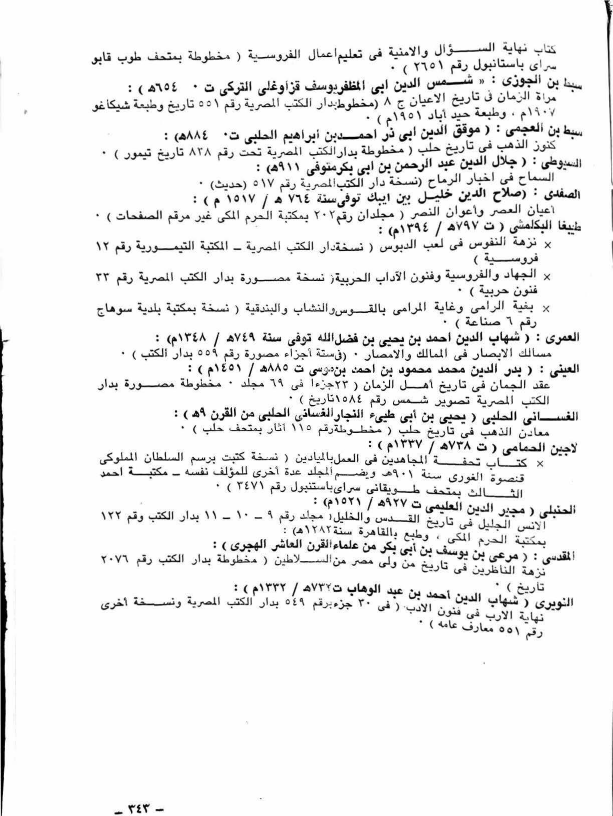 كتاب نهاية الســـؤال والامنية فى تعليم اعمال الفروسـية ( مخطوطة بمتحف طوب قابو
سراى باستانبول رقم ٢٦٥١ ) ٠
سبط بن الجوزى : « شـــمس الدين ابى المظفر يوسف قزاوغلى التركى ت ٠ ٦٥٤ هـ) :
مرآة الزمان فى تاريخ الاعيان ج ٨ (مخطوط بدار الكتب المصرية رقم ٥٥١ تاريخ وطبعة شيكاغو
١٩٠٧م ، وطبعة حيد آباد ١٩٥١م) ٠
سبط بن العجمى : ( موفق الدين ابى ذر احمـــد بن أبراهيم الحلبى ت٠ ٨٨٤هـ):
كنوز الذهب فى تاريخ حلب ( مخطوطة بدار الكتب المصرية تحت رقم ٨٣٨ تاريخ تيمور ) ٠
السيوطى : ( جلال الدين عبد الرحمن بن أبى بكر متوفى ٩١١هـ):
السماح فى اخبار الرماح (نسخة دار الكتب المصرية رقم ٥١٧ (حديث) ٠
الصفدى : (صلاح الدين خليــل بين ايبك توفى سنة ٧٦٤ هـ / ١٥١٧ م ) :
أعيان العصر وأعوان النصر ( مجلدان رقم ٢٠٢ بمكتبة الحرم المكى غير مرقم الصفحات ) ٠
طيبغا البكلمشى ( ت ٧٩٧هـ / ١٣٩٤م):
× نزهة النفوس فى لعب الدبوس ( نسخة دار الكتب المصرية ــ المكتبة التيمـــورية رقم ١٢
فروســـية )
× الجهاد والفروسية وفنون الآداب الحربية ( نسخة مصـــورة بدار الكتب المصرية رقم ٣٣
فنون حربية ) ٠
× بغية الرامى وغاية المرامى بالقـــوس والنشاب والبندقية ( نسخة بمكتبة بلدية سوهاج
رقم ٦ صناعة ) ٠
العمرى : ( شهاب الدين احمد بن يحيى بن فضل الله توفى سنة ٧٤٩هـ / ١٣٤٨م):
مسالك الابصار فى الممالك والامصار ٠ (فى ستة أجزاء مصورة رقم ٥٥٩ بدار الكتب) ٠
العينى : ( بدر الدين محمد محمود بن احمد بن موسى ت ٨٨٥هـ / ١٤٥١م) :
عقد الجمان فى تاريخ أهــل الزمان ( ٢٣ جزءا فى ٦٩ مجلد ٠ مخطوطة مصـــورة بدار
الكتب المصرية تصوير شــمس رقم ١٥٨٤ تاريخ) ٠
الغســـانى الحلبى : ( يحيى بن أبى طيىء النجار الغسانى الحلبى من القرن ٩هـ) :
معادن الذهب فى تاريخ حلب ( مخطــوطة رقم ١١٥ آثار بمتحف حلب ) ٠
لاجين الحمامى ( ت ٧٣٨هـ / ١٣٣٧م ) :
× كتــــاب تحفــة المجاهدين فى العمل بالميادين ( نسخة كتبت برسم السلطان المملوكى
قنصوة الغورى سنة ٩٠١هـ ويضــم المجلد عدة أخرى للمؤلف نفسه ــ مكتبـــة احمد
الثـــالث بمتحف طـــوبقانى سراى باستنبول رقم ٣٤٧١ ) ٠
الحنبلى ( مجير الدين العليمى ت ٩٢٧هـ / ١٥٢١م):
الانس الجليل فى تاريخ القــدس والخليل ( مجلد رقم ٩ – ١٠ – ١١ بدار الكتب وقم ١٢٢
بمكتبة الحرم المكى ، وطبع بالقاهرة سنة ١٢٨٢هـ):
المقدسى : ( مرعى بن يوسف بن أبى بكر من علماء القرن العاشر الهجرى ) :
نزهة الناظرين فى تاريخ من ولى مصر من الســلاطين ( مخطوطة بدار الكتب رقم ٢٠٧٦
تاريخ ) ٠
النويرى ( شهاب الدين احمد بن عبد الوهاب ت ٧٣٢هـ / ١٣٣٢م ) :
نهاية الارب فى فنون الادب ( فى ٣٠ جزء برقم ٥٤٩ بدار الكتب المصرية ونســخة أخرى
رقم ٥٥١ معارف عامه ) ٠
– ٣٤٣ –